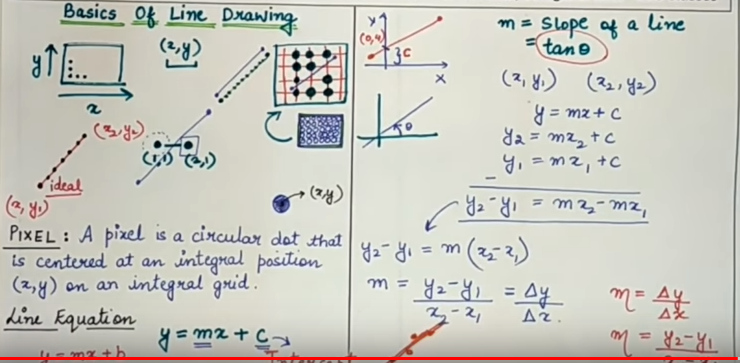 Basics Of Line Drawing
y
(x,y)
x
(x₂,y₂)
(1,1) (2,1)
ideal
(x,y₁)
(x,y)
PIXEL : A pixel is a circular dot that
is centered at an integral position
(x,y) on an integral grid.
Line Equation
y = mx + c
y = mx + b
Y
(0,4)
C
X
θ
m = slope of a line
= tanθ
(x₁ y₁) (x₂, y₂)
y = mx + c
y₂ = mx₂ + c
y₁ = mx₁ + c
-
y₂ - y₁ = mx₂ - mx₁
y₂ - y₁ = m(x₂ - x₁)
m = y₂ - y₁ = Δy
x₂ - x₁ Δx.
m = Δy
Δx
m = y₂ - y₁